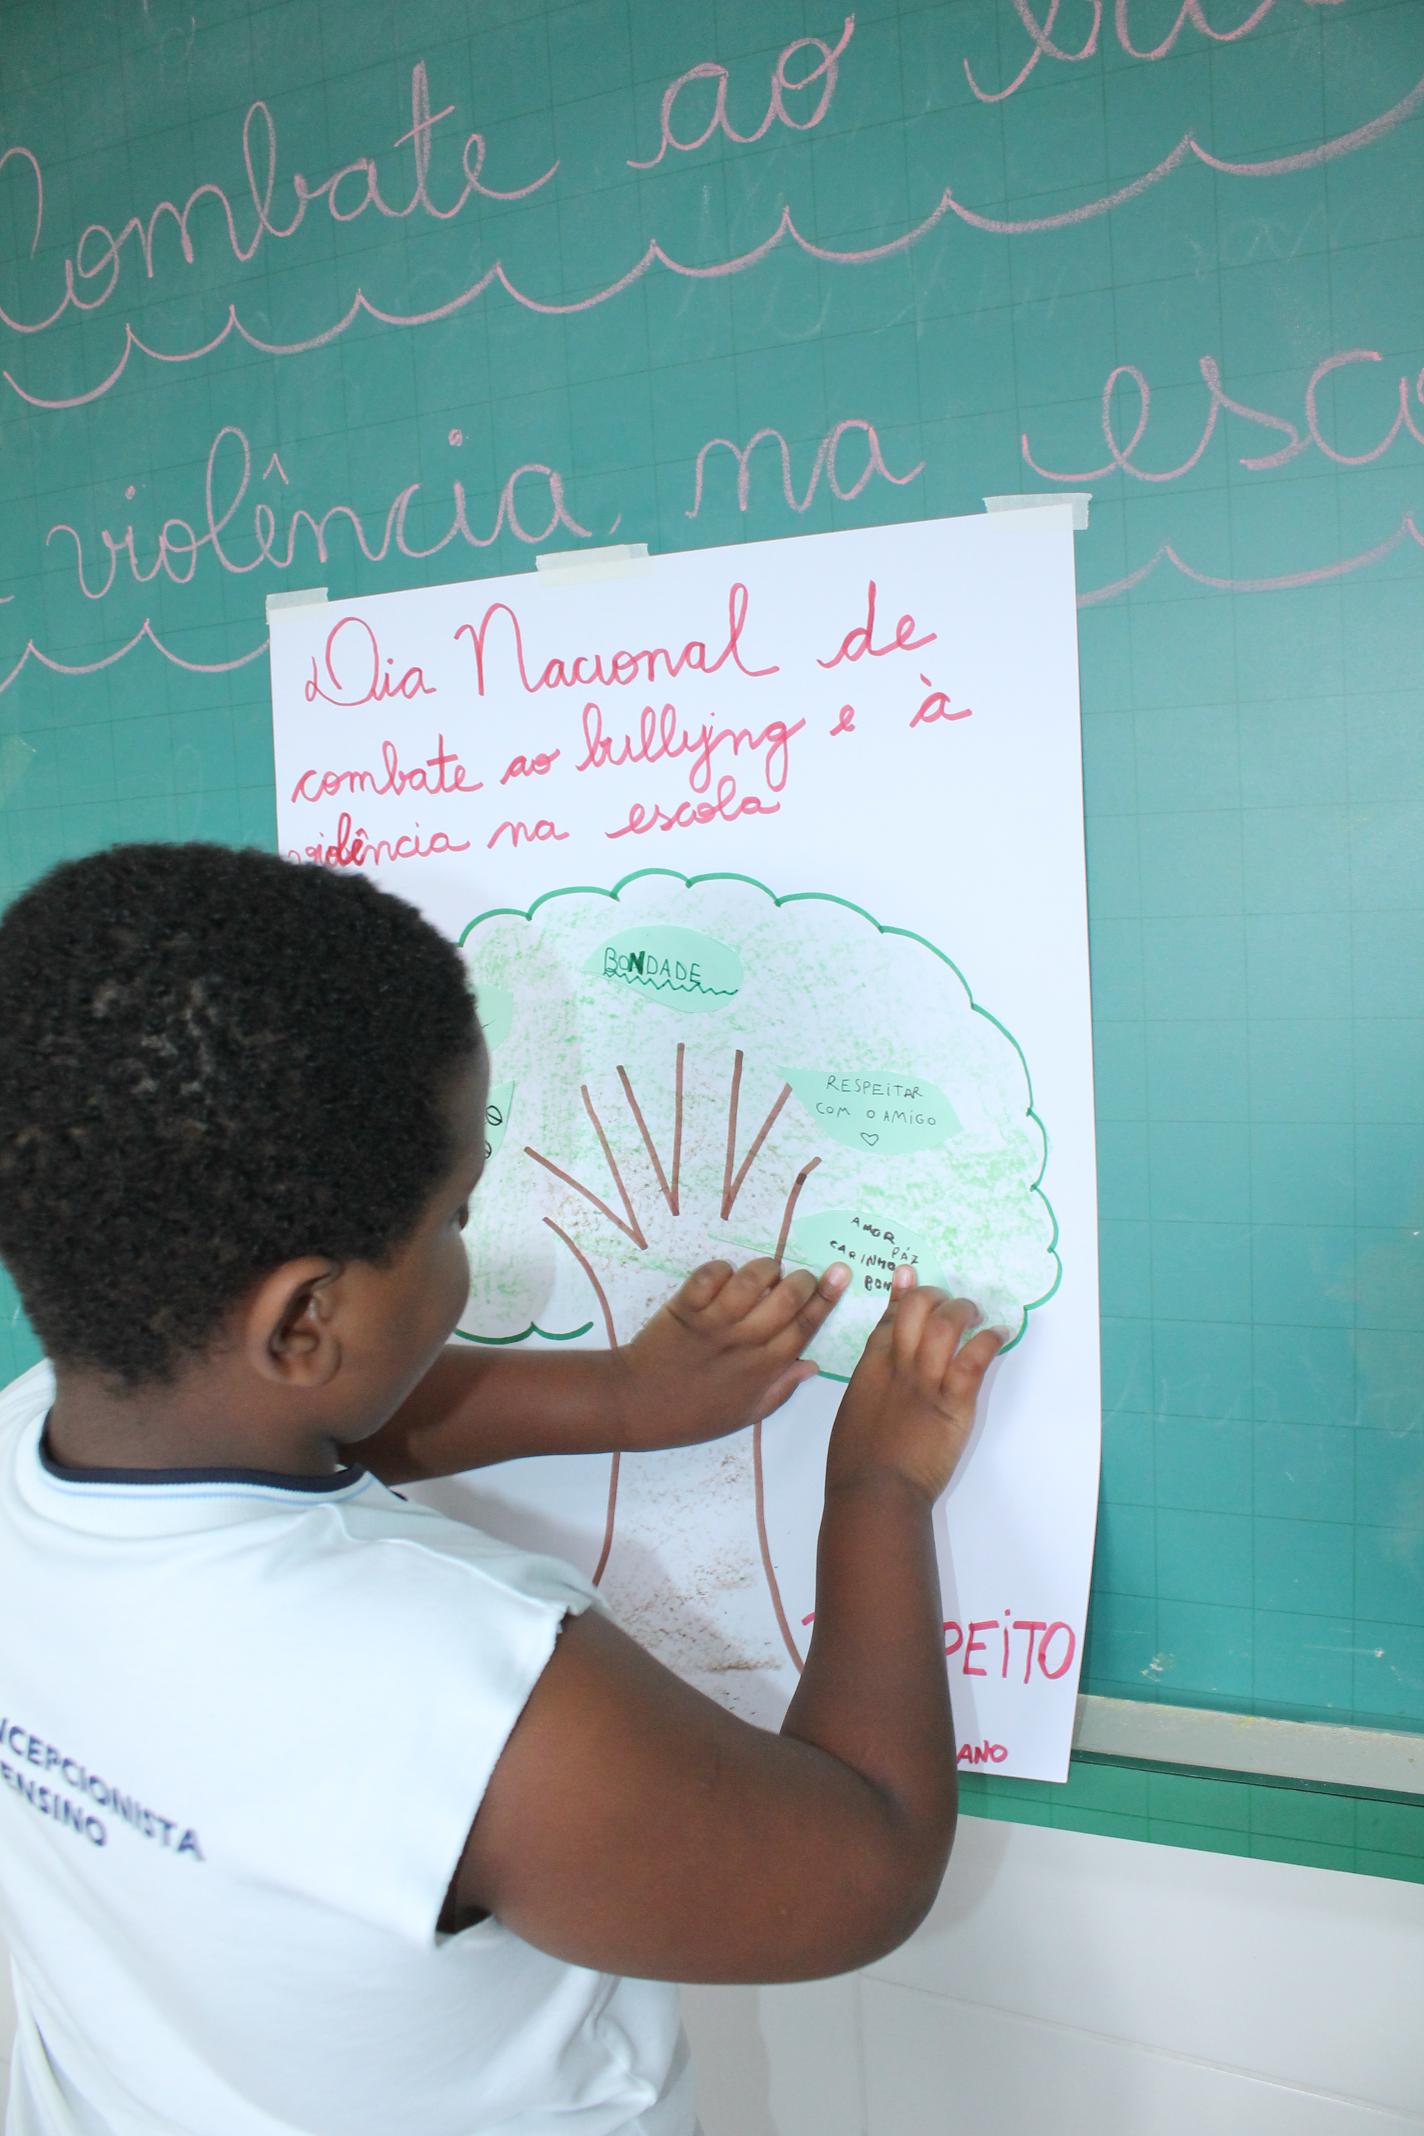 Combate ao
violência na
Dia Nacional de
combate ao bullyjng e à
violência na escola
BONDADE
RESPEITAR
COM O AMIGO
AMOR
PÁZ
CARINHO
ANO
ENSINO